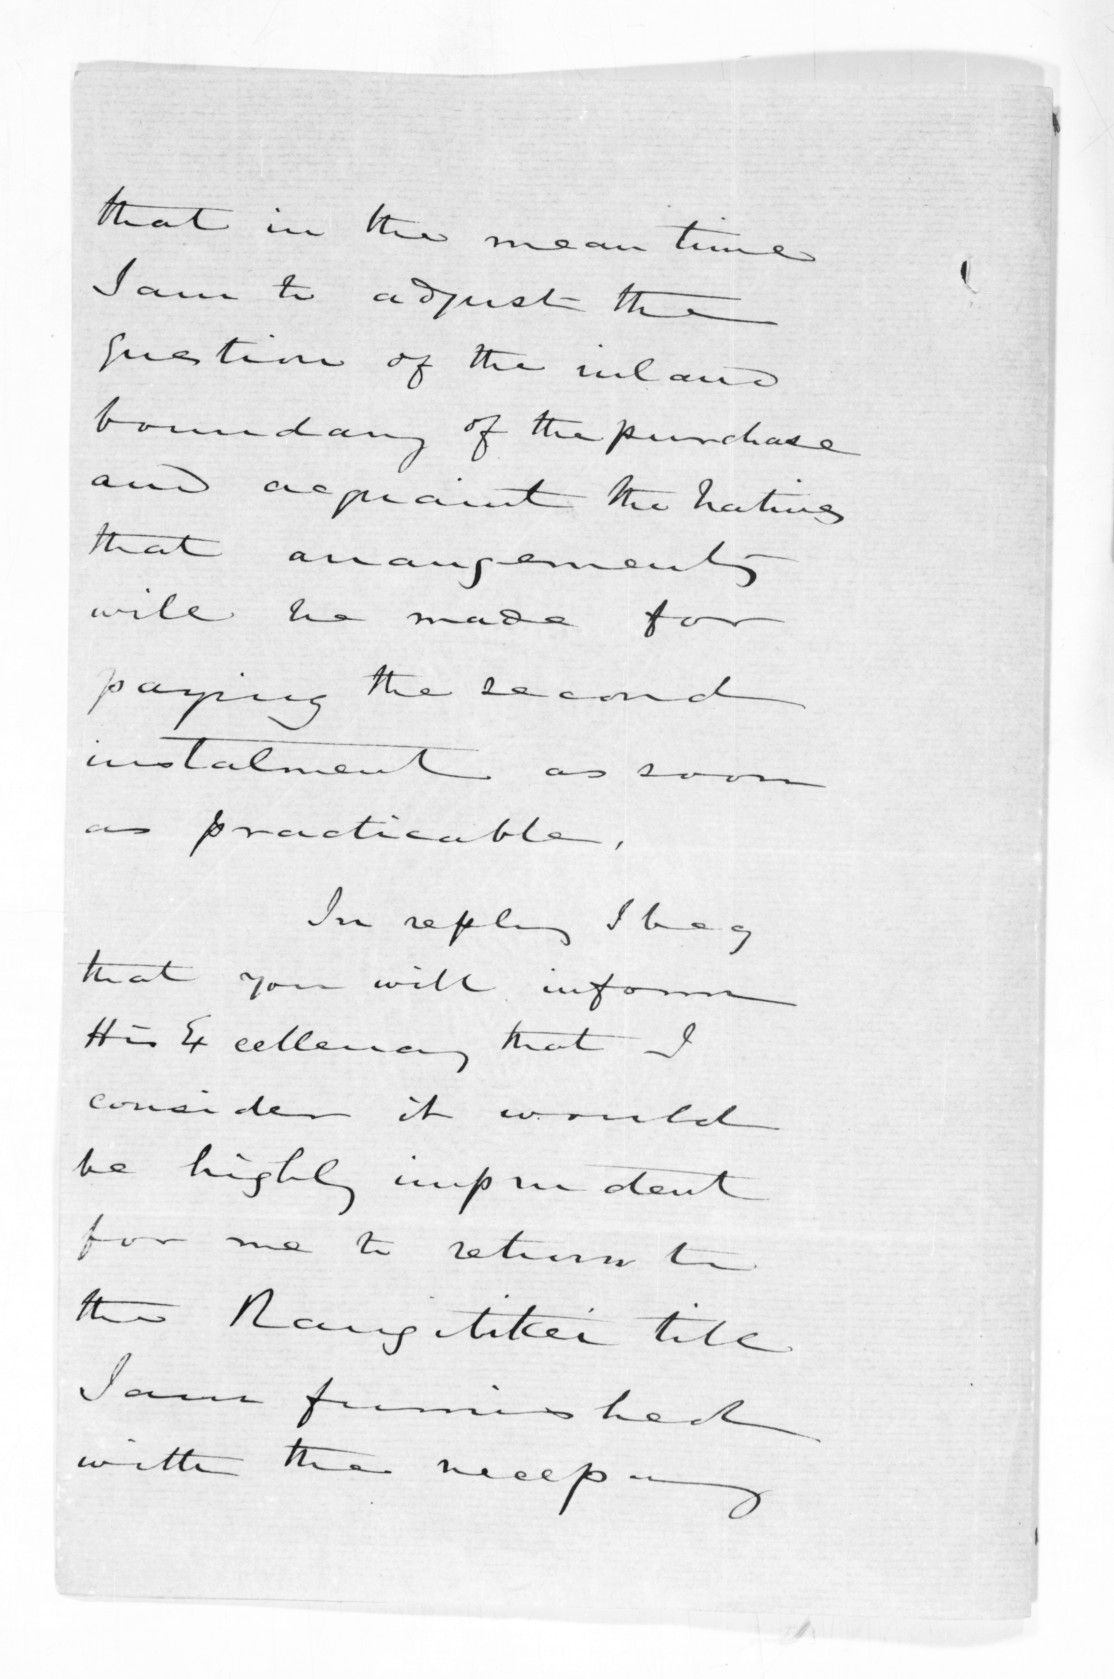 that in the mean time
I am to adjust the
question of the inland
boundary of the purchase
and acquaint the Natives
that arrangements
will be made for
paying the second
instalment as soon
as practicable.
In reply I beg
that you will inform
His Excellency that I
consider it would
be highly imprudent
for me to return to
the Rangitikei till
I am furnished
with the necessary